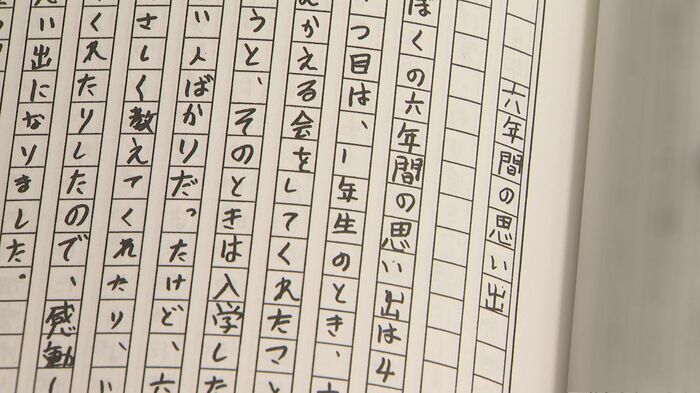 六年間の思い出
ぼくの六年間の思い出は4
つ目は、1年生のとき、
むかえる会をしてくれたこ
うと、そのときは入学した
い人ばかりだったけど、六
さしく教えてくれたり、
くれたりしたので、感動し
い出になりました。